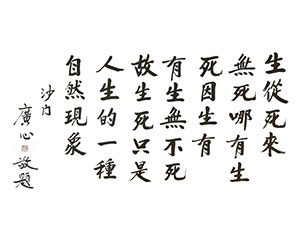 生從死來
無死哪有生
死因生有
有生無不死
故生死只是
人生的一種
自然現象
沙門
廣心
敬題